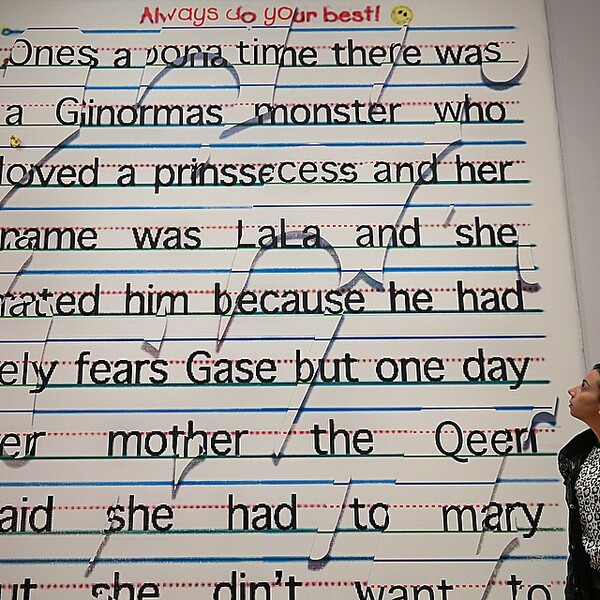 Always do your best!
Ones a pona time there was
a Ginormas monster who
loved a prinssecess and her
name was LaLa and she
hated him because he had
ely fears Gase but one day
er mother the Qeen
aid she had to mary
ut she din't want to